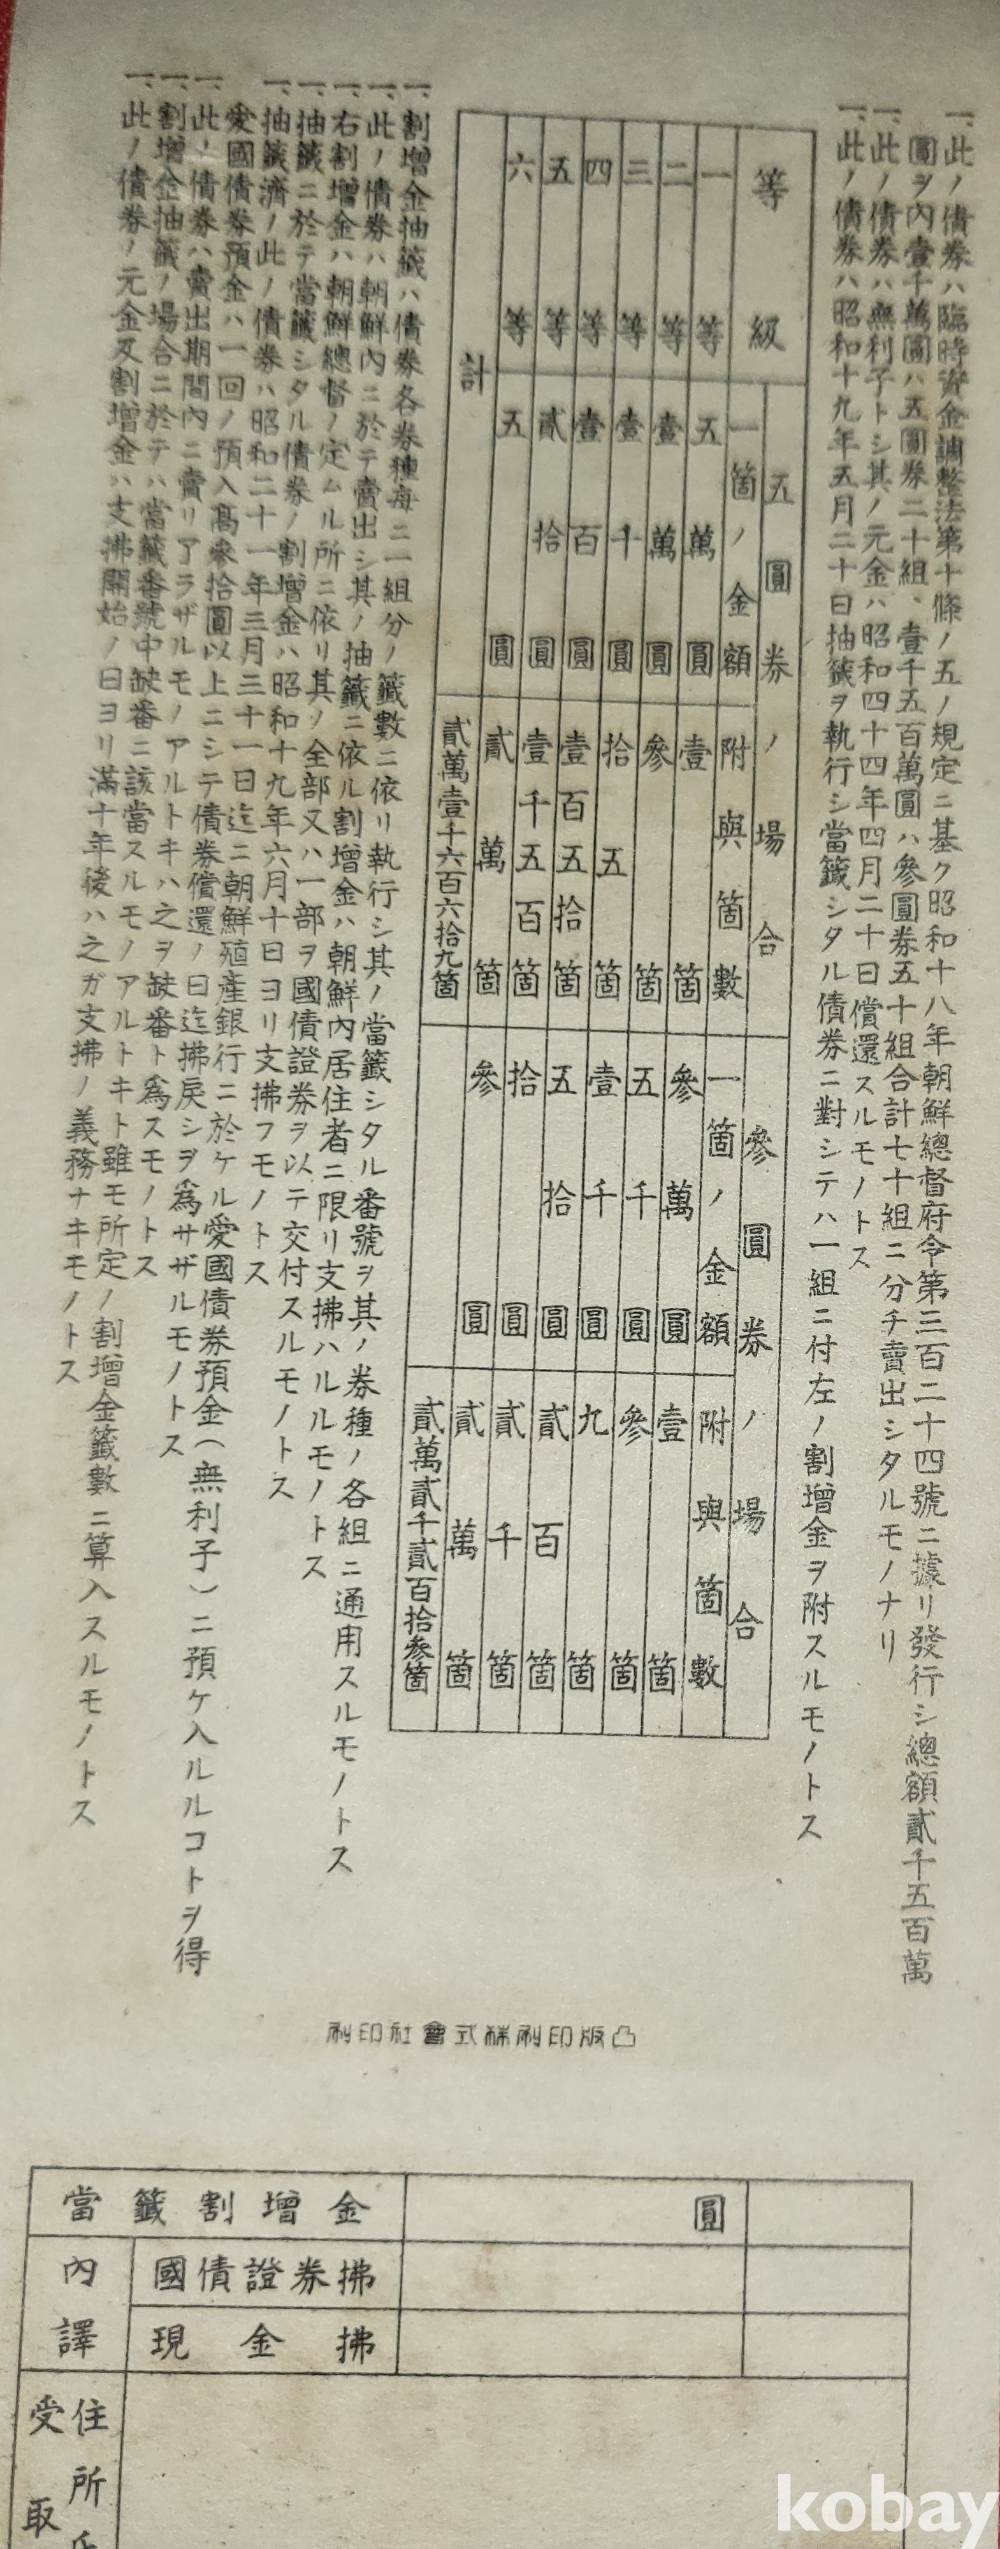 一、此ノ債券ハ臨時資金調整法第十條ノ五ノ規定ニ基ク昭和十八年朝鮮總督府令第三百二十四號ニ據リ發行シ總額貳千五百萬
圓ヲ內壹千萬圓ハ五圓券二十組、壹千五百萬圓ハ參圓券五十組合計七十組ニ分チ賣出シタルモノナリ
一、此ノ債券ハ無利子トシ其ノ元金ハ昭和四十四年四月二十日償還スルモノトス
一、此ノ債券ハ昭和十九年五月二十日抽籤ヲ執行シ當籤シタル債券ニ對シテハ一組ニ付左ノ割增金ヲ附スルモノトス
等級 五圓券ノ場合 參圓券ノ場合
一箇ノ金額 附與箇數 一箇ノ金額 附與箇數
一等 五萬圓 壹箇 參萬圓 壹箇
二等 壹萬圓 參箇 五千圓 參箇
三等 壹千圓 拾五箇 壹千圓 九箇
四等 壹百圓 壹百五拾箇 五拾圓 貳百箇
五等 貳拾圓 壹千五百箇 拾圓 貳千箇
六等 五圓 貳萬箇 參圓 貳萬箇
計 貳萬壹千六百六拾九箇 貳萬貳千貳百拾參箇
一、割增金抽籤ハ債券各券種每ニ一組分ノ籤數ニ依リ執行シ其ノ當籤シタル番號ヲ其ノ券種ノ各組ニ通用スルモノトス
一、此ノ債券ハ朝鮮內ニ於テ賣出シ其ノ抽籤ニ依ル割增金ハ朝鮮內居住者ニ限リ支拂ハルルモノトス
一、右割增金ハ朝鮮總督ノ定ムル所ニ依リ其ノ全部又ハ一部ヲ國債證券ヲ以テ交付スルモノトス
一、抽籤ニ於テ當籤シタル債券ノ割增金ハ昭和十九年六月十日ヨリ支拂フモノトス
一、抽籤濟ノ此ノ債券ハ昭和二十一年三月三十一日迄ニ朝鮮殖產銀行ニ於ケル愛國債券預金(無利子)ニ預ケ入ルルコトヲ得
愛國債券預金ハ一回ノ預入高參拾圓以上ニシテ債券償還ノ日迄拂戾シヲ爲サザルモノトス
一、此ノ債券ハ賣出期間內ニ賣リアラザルモノアルトキハ之ヲ缺番ト爲スモノトス
一、割增金抽籤ノ場合ニ於テハ當籤番號中缺番ニ該當スルモノアルトキト雖モ所定ノ割增金籤數ニ算入スルモノトス
一、此ノ債券ノ元金及割增金ハ支拂開始ノ日ヨリ滿十年後ハ之ガ支拂ノ義務ナキモノトス
凸版印刷株式會社印刷
當籤割增金 圓
內譯 國債證券拂
現金拂
受取
住所
kobay